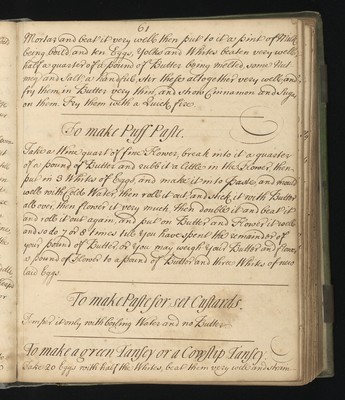 61
Mortar and beat it very well then put to it a pint of Milk
being boild and ten Eggs, Yolks and Whites beaten very well,
half a quarter of a pound of Butter being melted some Nut
meg and Salt, a handfull, stir these altogether very well, and
fry them in Butter very thin, and strow Cinnamon and Sugar
on them. Fry them with a Quick fire.
To make Puff Paste.
Take a Wine quart of fine Flower, break into it a quarter
of a pound of Butter and rubb it a little in the Flower, then
put in 3 Whites of Eggs, and make it into Paste, and mould
well with cold Water, then roll it out, and stick it with Butter
all over, then flower it very much, then double it and beat it
and roll it out again, and put on Butter and Flower it well
and so do 7 or 8 times till you have spent the remainder of
your pound of Butter, or you may weigh your Butter and Flower
a pound of Flower to a pound of Butter and three Whites of new
laid Eggs.
To make Paste for set Custards.
Temper it only with boiling Water and no Butter
To make a green Tansey or a Cowslip Tansey.
Take 20 Eggs with half the Whites, beat them very well and strain